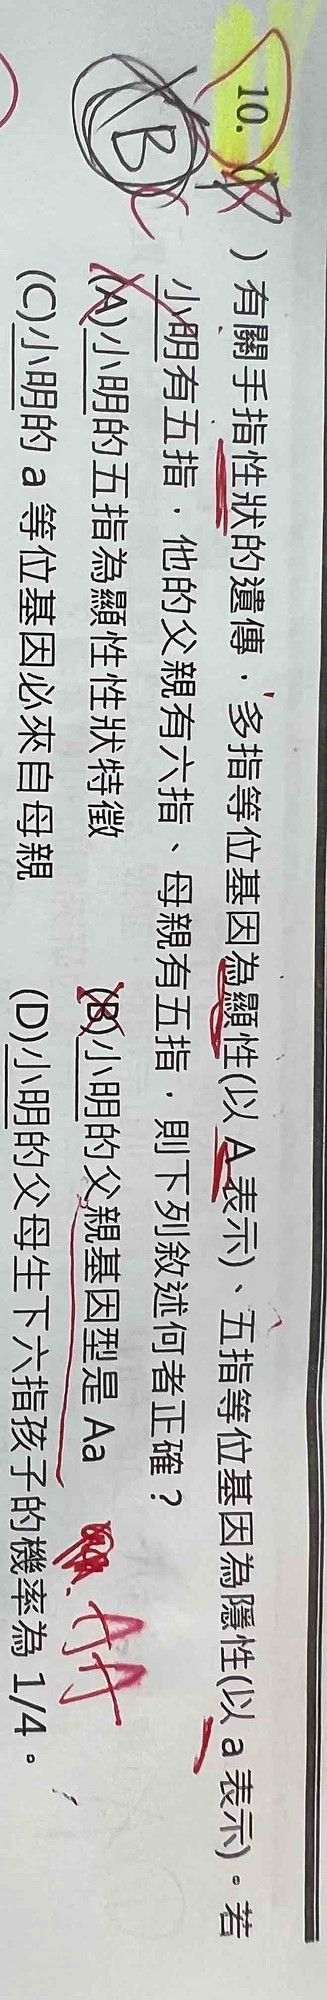 10. B
)有關手指性狀的遺傳，多指等位基因為顯性(以 A 表示)、五指等位基因為隱性(以 a 表示)。若
小明有五指，他的父親有六指、母親有五指，則下列敘述何者正確？
(A)小明的五指為顯性性狀特徵 (B)小明的父親基因型是 Aa AA
(C)小明的 a 等位基因必來自母親 (D)小明的父母生下六指孩子的機率為 1/4。